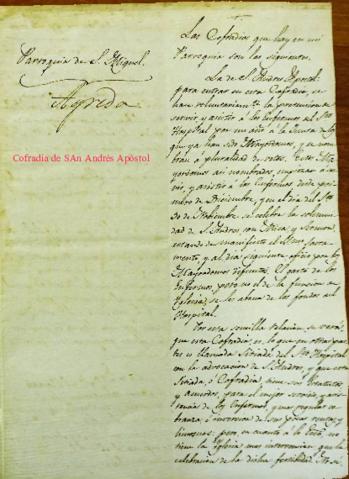 Parroquia de S. Miguel.
Agreda
Cofradía de SAn Andrés Apóstol
Las Cofradias que hay en mi
Parroquia son las siguientes.
La de S. Andres Apostol:
para entrar en esta Cofradia, se
servir y asistir á los Enfermos del Sto.
Hospital por un año á la
que ya han sido Mayordomos, y se nom-
bran á pluralidad de votos. Estos Ma-
yordomos asi nombrados, empiezan á ser-
vir, y asistir á los Enfermos dia pri-
mero de Diciembre, y en el dia del Sto.
30 de Noviembre se celebra la solemni-
dad de S. Andres con Misa, y Sermon,
estando de manifiesto el Smo. Sacra-
mento, y al dia siguiente oficio por los
Mayordomos difuntos. El gasto de los
Enfermos, pero no el de la funcion de
Iglesia, se les abona de los fondos del
Hospital.
Por esta sencilla relacion, se verá
que esta Cofradia es, lo que en otras par-
tes es llamada del Sto. Hospital
con la advocacion de S. Andres, y que esta
ó Cofradia, tiene sus Estatutos
y acuerdos, para el mejor servicio y asis-
tencia de los Enfermos, y mas regular co-
branza, é inversion de sus rentas, y
limosnas: pero en cuanto á la
tiene la Iglesia mas intervencion que la
celebracion de la dicha festividad.